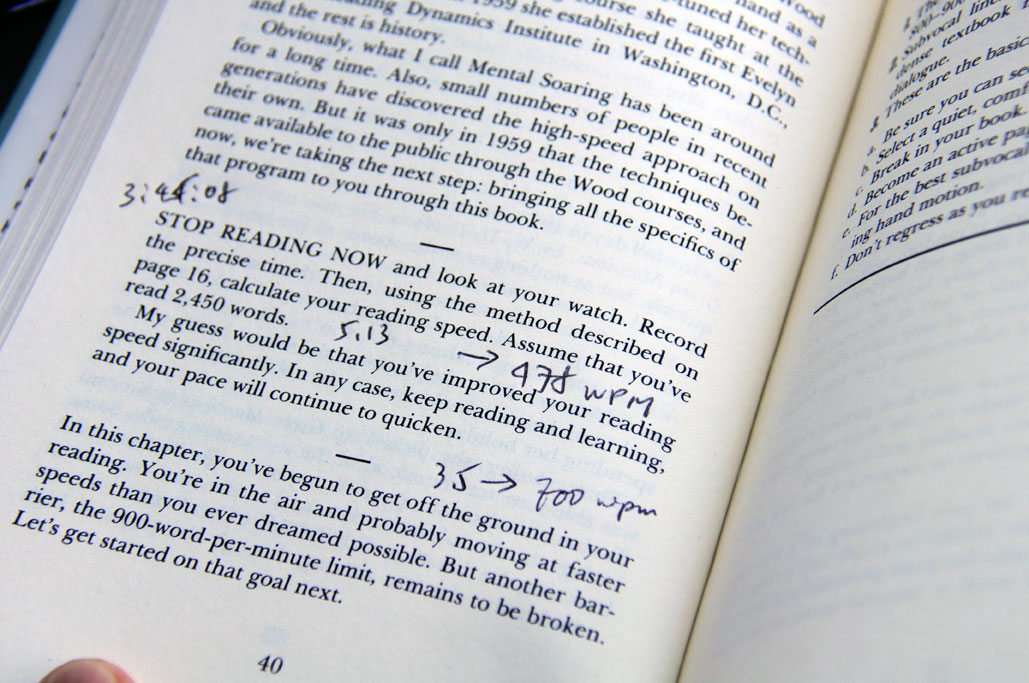 hand as a
course she taught at the
1959 she established the first Evelyn
Dynamics Institute in Washington, D.C.,
and the rest is history.
Obviously, what I call Mental Soaring has been around
for a long time. Also, small numbers of people in recent
generations have discovered the high-speed approach on
their own. But it was only in 1959 that the techniques be-
came available to the public through the Wood courses, and
now, we're taking the next step: bringing all the specifics of
that program to you through this book.
STOP READING NOW and look at your watch. Record
the precise time. Then, using the method described on
page 16, calculate your reading speed. Assume that you've
read 2,450 words.
5.13
→ 478 WPM
My guess would be that you've improved your reading
speed significantly. In any case, keep reading and learning,
and your pace will continue to quicken.
35 → 700 wpm
In this chapter, you've begun to get off the ground in your
reading. You're in the air and probably moving at faster
speeds than you ever dreamed possible. But another bar-
rier, the 900-word-per-minute limit, remains to be broken.
Let's get started on that goal next.
40
Subvocal
dense textbook
dialogue.
These are the basic
a. Be sure you can see
b. Select a quiet,
c. Break in your book.
d. Become an active
e. For the best subvocal
ing hand motion.
f. Don't regress as you